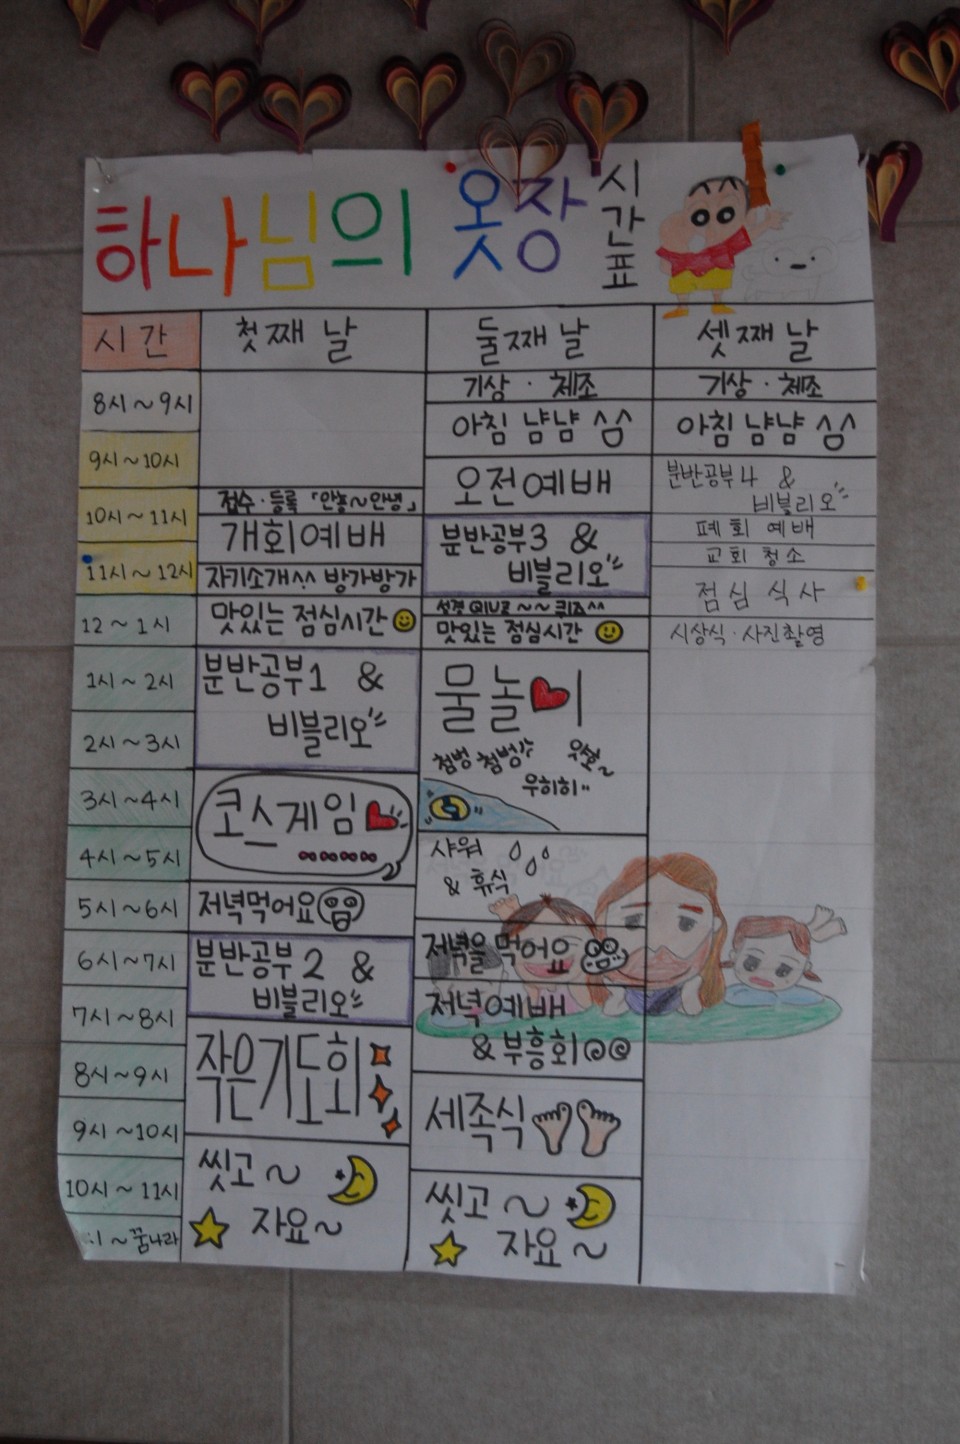 하나님의 옷장 시간표
시간 첫째 날 둘째 날 셋째 날
8시~9시
9시~10시
10시~11시
11시~12시
12~1시
1시~2시
2시~3시
3시~4시
4시~5시
5시~6시
6시~7시
7시~8시
8시~9시
9시~10시
10시~11시
~꿈나라
접수·등록 「안녕~안녕」
개회예배
자기소개^^ 방가방가
맛있는 점심시간
분반공부1 &
비블리오
코스게임
저녁먹어요
분반공부2 &
비블리오
작은기도회
씻고~
자요~
기상·체조
아침 냠냠 ^^
오전예배
분반공부3 &
비블리오
성경 QUIZ~~퀴즈^^
맛있는 점심시간
물놀이
첨벙 첨벙
얏호~
우히히
샤워
& 휴식
저녁을 먹어요
저녁예배
& 부흥회
세족식
씻고~
자요~
기상·체조
아침 냠냠 ^^
분반공부4 &
비블리오
폐회 예배
교회 청소
점심 식사
시상식·사진촬영